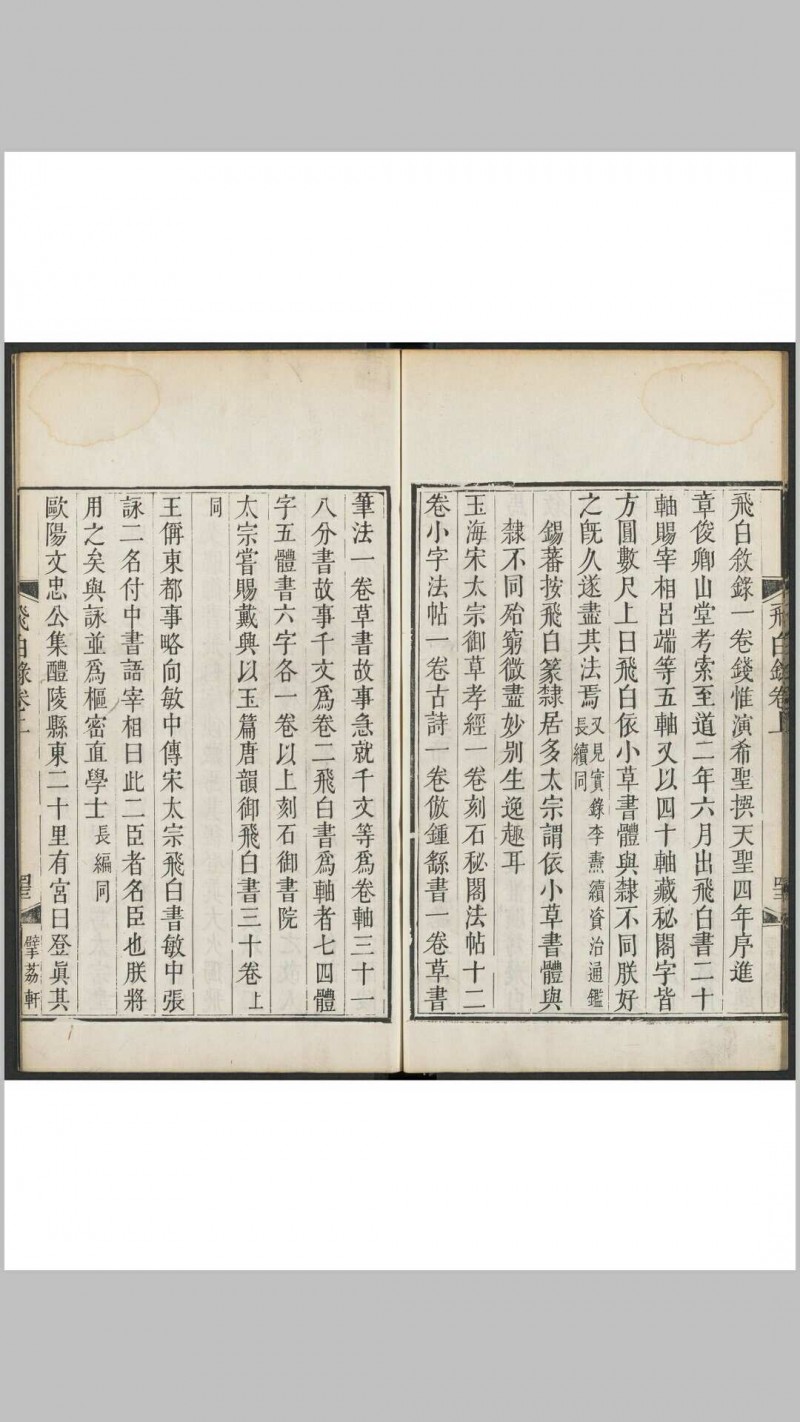 飛白敘錄一卷錢惟演希聖撰天聖四年序進
章俊卿山堂考索至道二年六月出飛白書二十
軸賜宰相呂端等五軸又以四十軸藏秘閣字皆
方圓數尺上曰飛白依小草書體與隸不同朕好
之既久遂盡其法焉又見實錄李燾續資治通鑑
長續同
錫蕃按飛白篆隸居多太宗謂依小草書體與
隸不同殆窮微盡妙别生逸趣耳
玉海宋太宗御草孝經一卷刻石秘閣法帖十二
卷小字法帖一卷古詩一卷倣鍾繇書一卷草書
飛白錄卷上
筆法一卷草書故事急就千文等爲卷軸三十一
八分書故事千文爲卷二飛白書爲軸者七四體
字五體書六字各一卷以上刻石御書院
太宗嘗賜戴興以玉篇唐韻御飛白書三十卷上
同
王偁東都事略向敏中傳宋太宗飛白書敏中張
詠二名付中書語宰相曰此二臣者名臣也朕將
用之矣與詠並爲樞密直學士長編同
歐陽文忠公集醴陵縣東二十里有宮曰登眞其
飛白錄卷上
擘荔軒